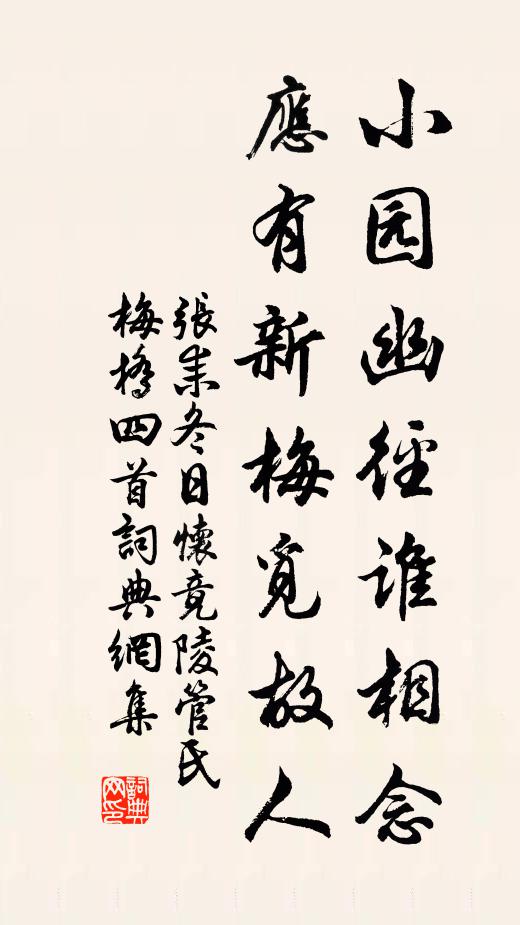 小园幽徑誰相念
應有新梅覓故人
張耒冬日懷竟陵管氏
梅橋四首詞典網集
詞典
网印